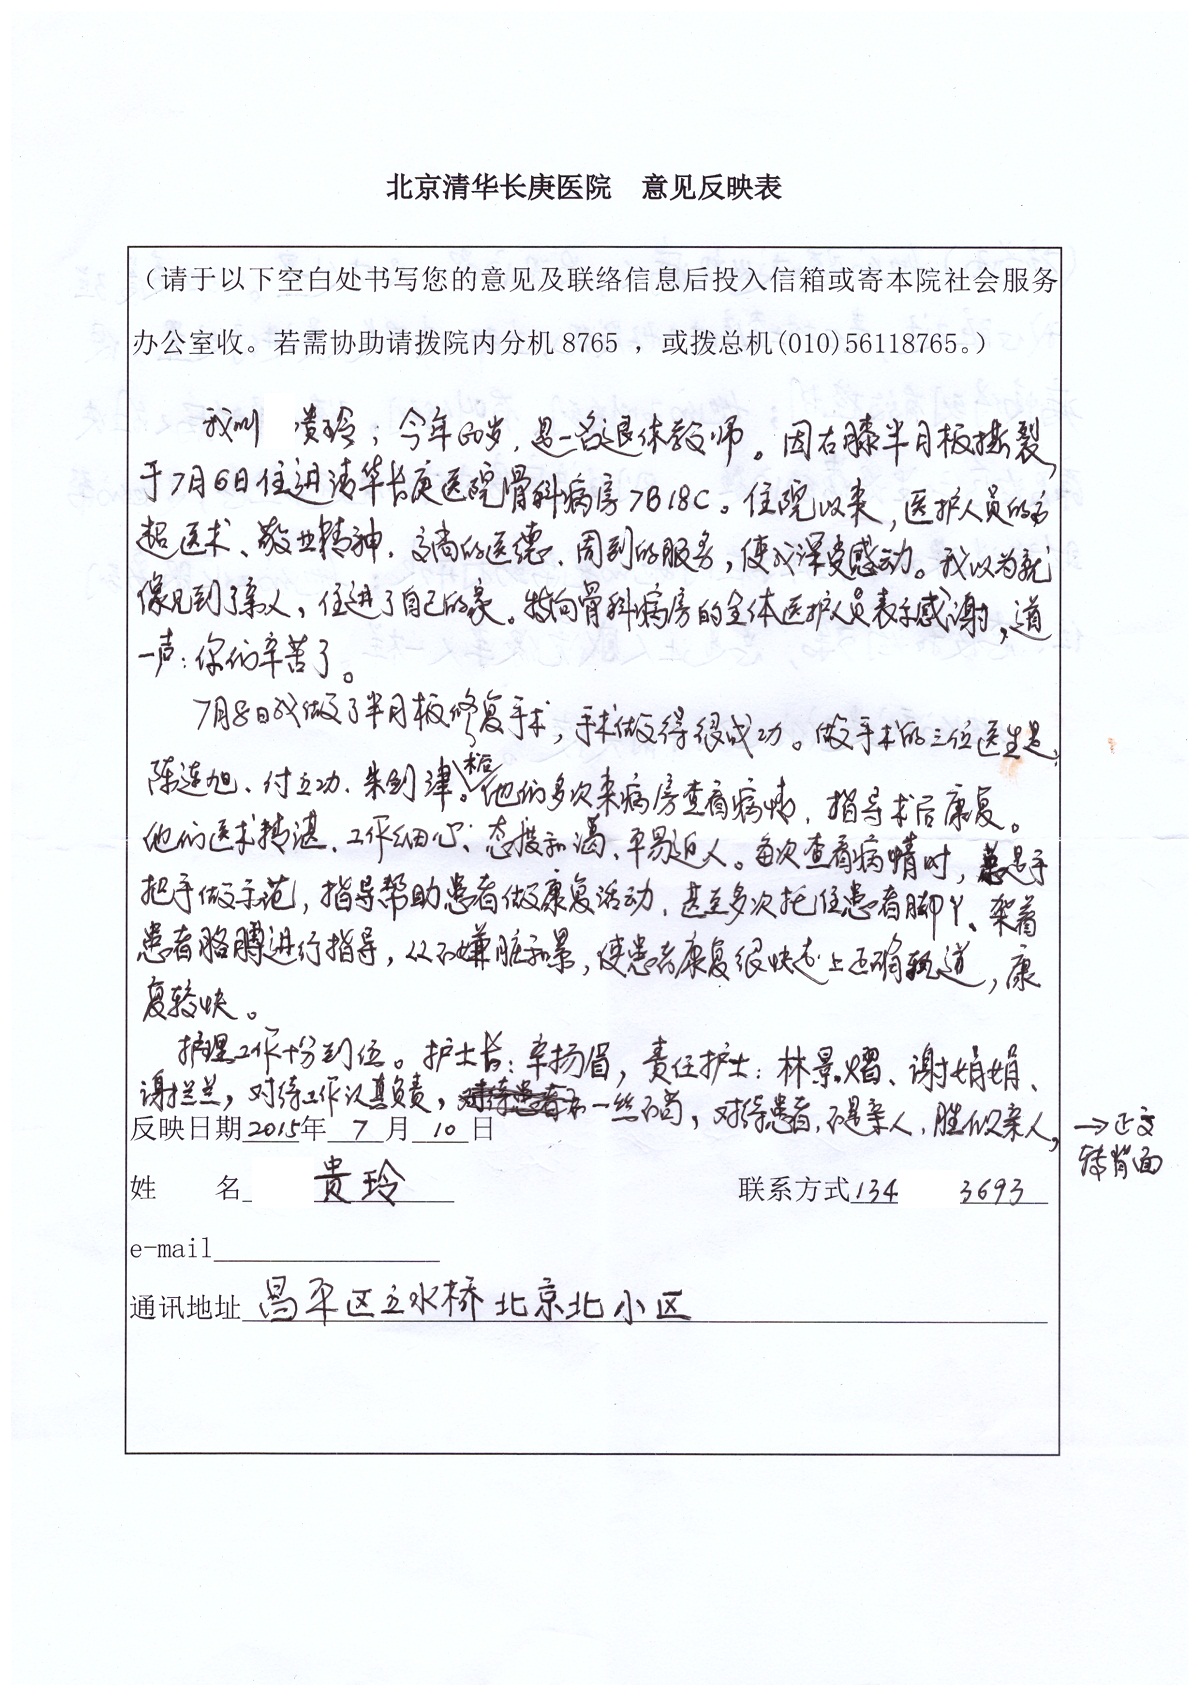 北京清华长庚医院 意见反映表
（请于以下空白处书写您的意见及联络信息后投入信箱或寄本院社会服务
办公室收。若需协助请拨院内分机8765 ，或拨总机(010)56118765。）
我叫 贵玲，今年60岁，是一名退休教师。因右膝半月板撕裂，
于7月6日住进清华长庚医院骨科病房7B18C。住院以来，医护人员的高
超医术、敬业精神、高尚的医德、周到的服务，使我深受感动。我以为就
像见到了亲人，住进了自己的家。特向骨科病房的全体医护人员表示感谢，道
一声：你们辛苦了。
7月8日我做了半月板修复手术，手术做得很成功。做手术的三位医生是：
陈连旭、付立功、朱剑津。术后他们多次来病房查看病情，指导术后康复。
他们医术精湛、工作细心、态度和谒、平易近人。每次查看病情时，总是手
把手做示范，指导帮助患者做康复活动，甚至多次托住患者脚丫、架着
患者胳膊进行指导，从不嫌脏和累，使患者康复很快走上正确轨道，康
复较快。
护理工作十分到位。护士长：辛扬眉，责任护士：林景熠、谢娟娟、
谢兰兰，对待工作认真负责，一丝不苟，对待患者，不是亲人，胜似亲人，
→正文
转背面
反映日期2015年 7 月 10 日
姓 名 贵玲 联系方式134 3693
e-mail
通讯地址 昌平区立水桥北京北小区